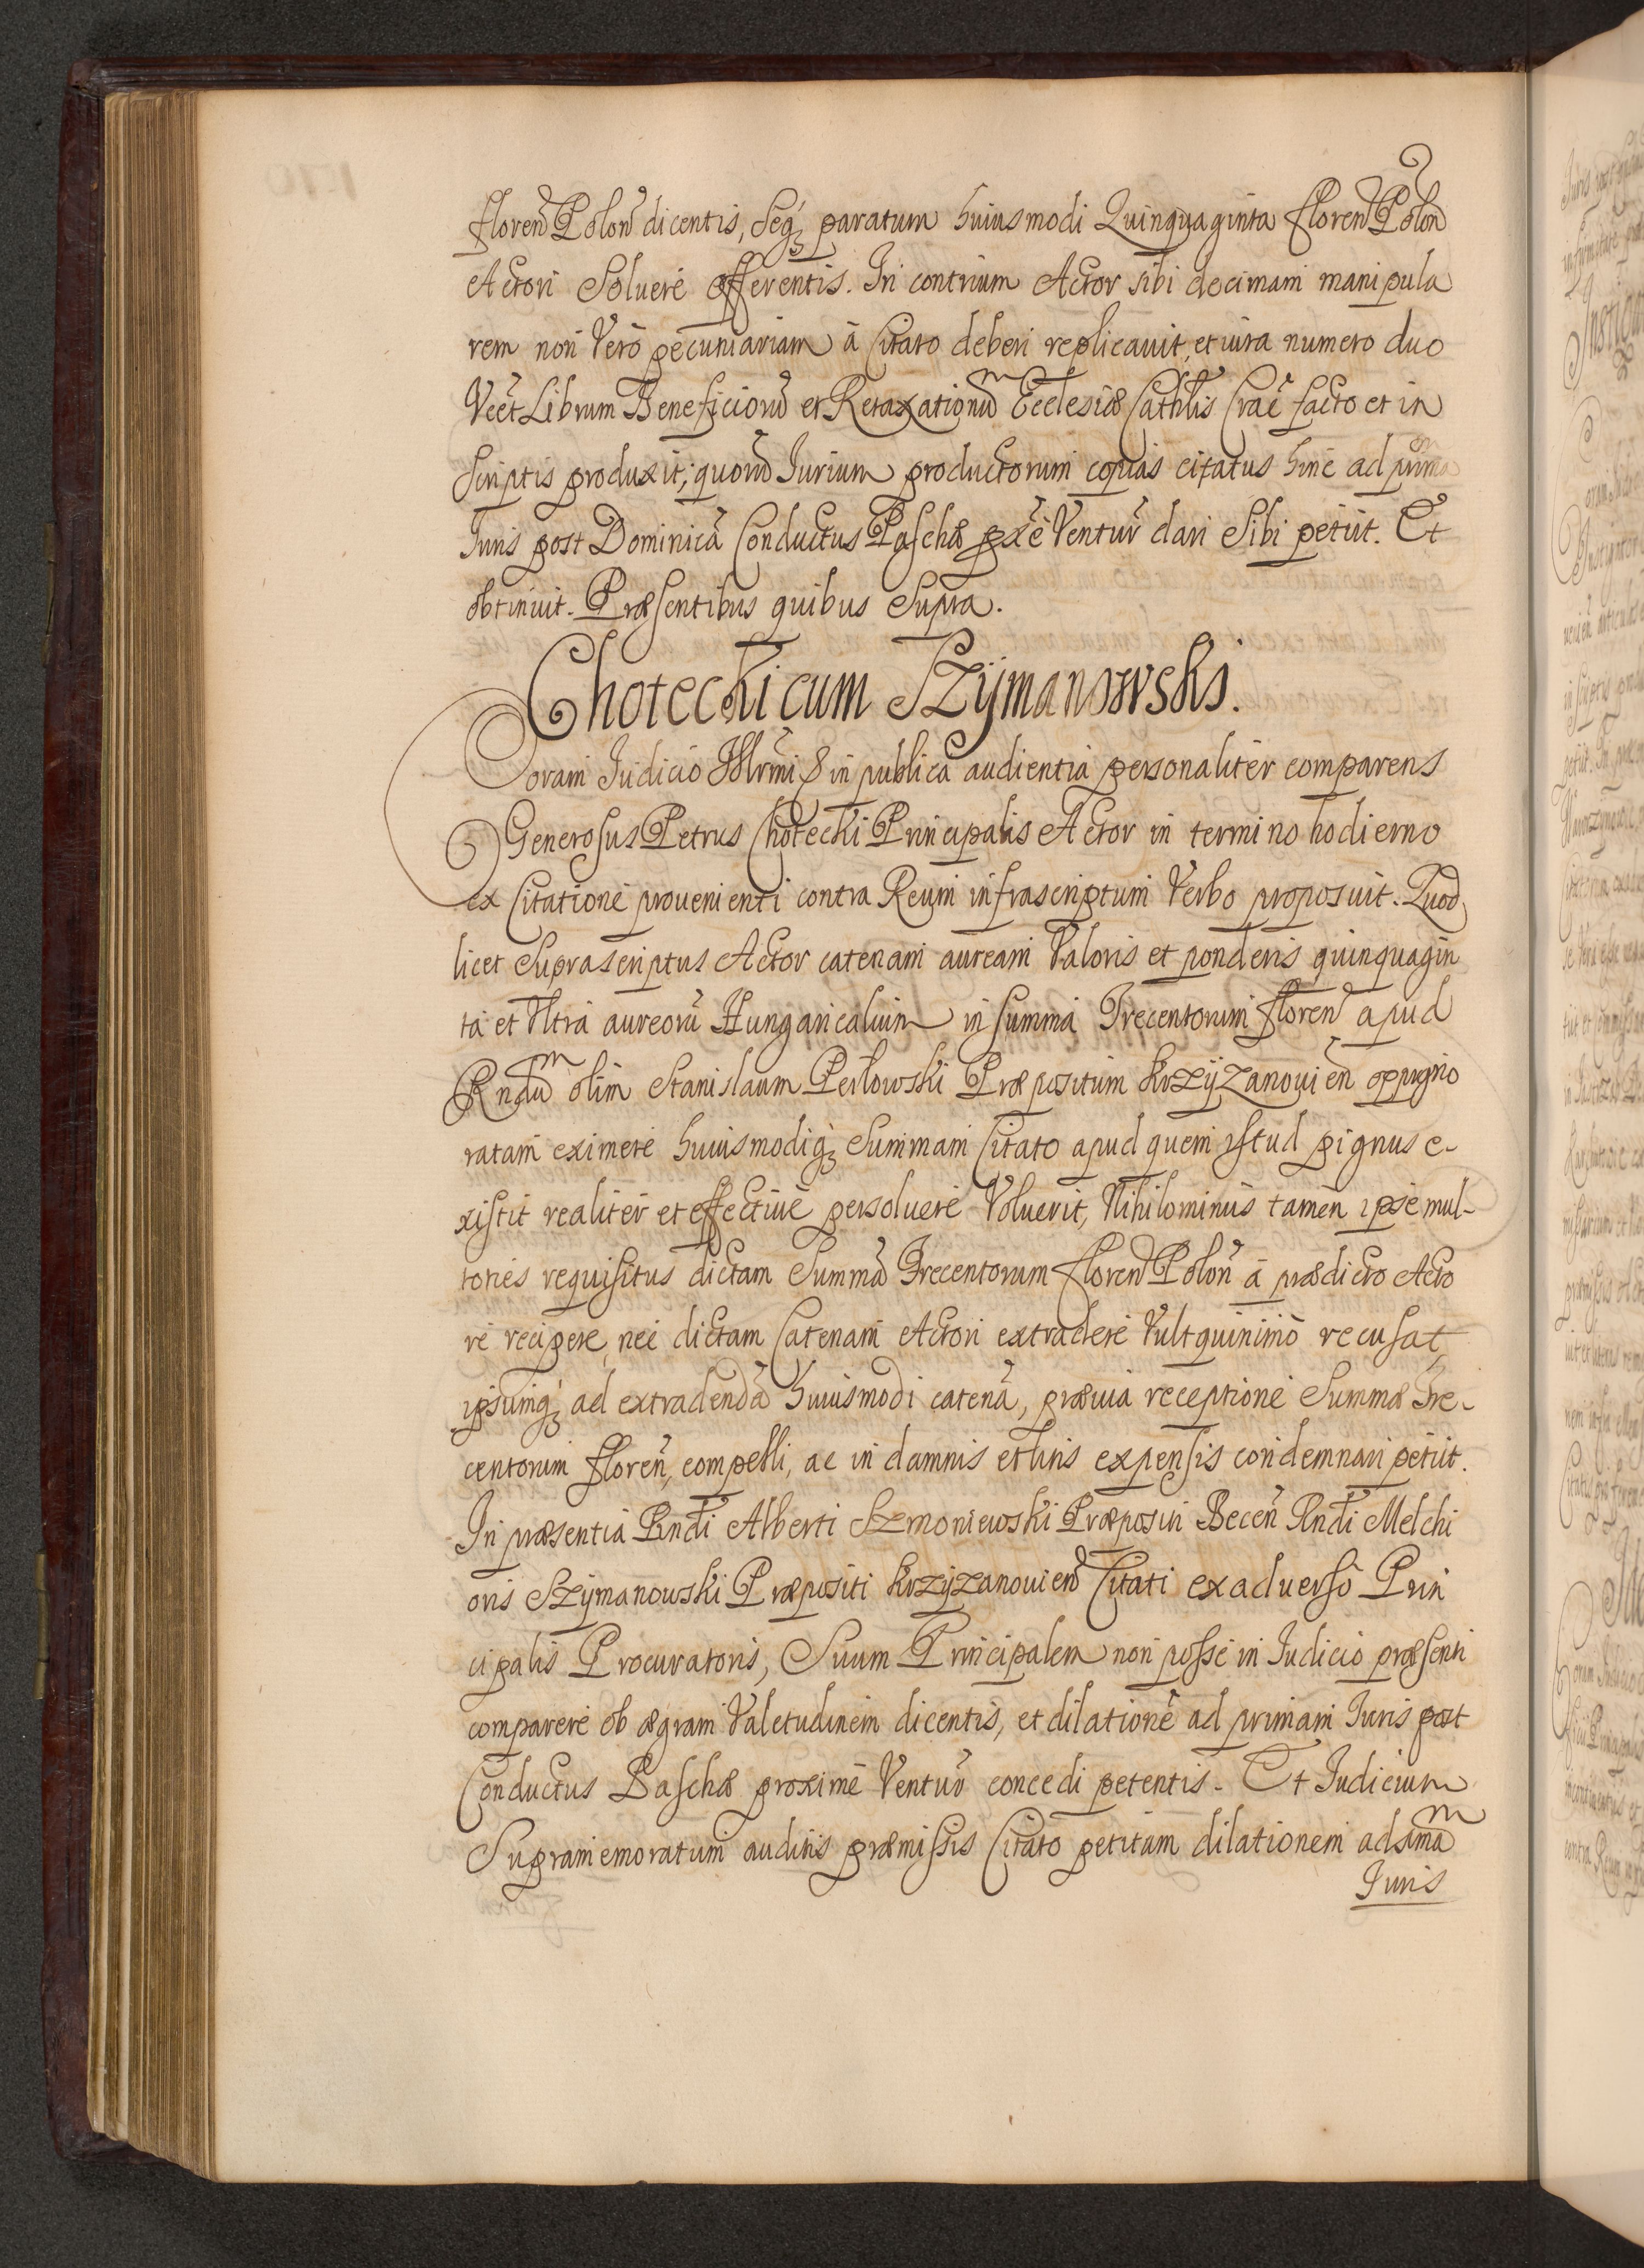 floren̄ Polon̄ dicentis, Seq₃ paratum huiusmodi Quinquaginta floren̄ Polon̄
Actori Soluere offerentis. In contrium Actor sibi decimam manipula
rem non Vero pecuniariam à Citato deberi replicauit, et iura numero duo
Vcēt Librum Beneficiorū et Retaxationū Ecclesiæ Cathlis Craē facto et in
scriptis produxit; quorū Iurium productorum copias citatus hinc ad primā
Iuris post Dominicā Conductus Paschæ pxē Ventur̄ dari Sibi petiit. Et
obtinuit. Præsentibus quibus Supra.
Chotecki cum Szÿmanowski.
Coram Iudicio Illrmi & in publica audientia personaliter comparens
Generosus Petrus Chotecki Principalis Actor in termino hodierno
ex Citatione prouenienti contra Reum infrascriptum Verbo proposuit. Quod
licet Suprascriptus Actor catenam auream Valoris et ponderis quinquagin
ta et Vltra aureorū Hungaricalium in summa Trecentorum floren̄ apud
Rndū olim Stanislaum Perlowski Præpositum Krzÿzanouien̄ oppigno
ratam eximere huiusmodiq₃ Summam Citato apud quem istud pignus e-
xistit realiter et effectiue persoluere Voluerit, Nihilominus tamen ipse mul-
toties requisitus dictam Summā Trecentorum floren̄ Polon̄ à prædicto Acto
re recipere, nec dictam Catenam Actori extradere Vult quinimò recusat,
ipsumq₃ ad extradendā huiusmodi catenā, præuia receptione Summæ Tre-
centorum floren̄, compelli, ac in damnis et litis expensis condemnari petiit.
In præsentia Rndi Alberti Szmoniewski Præpositi Becen̄ Rndi Melchi
oris Szÿmanowski Præpositi Krzÿzanouien̄ Citati ex aduerso Prin
cipalis Procuratoris, Suum Principalem non posse in Iudicio præsenti
comparere ob ægram Valetudinem dicentis, et dilationē ad primam Iuris post
Conductus Paschæ proxime Ventur̄ concedi petentis. Et Iudicium
Supramemoratum auditis præmissis Citato petitam dilationem ad 1mam
Iuris